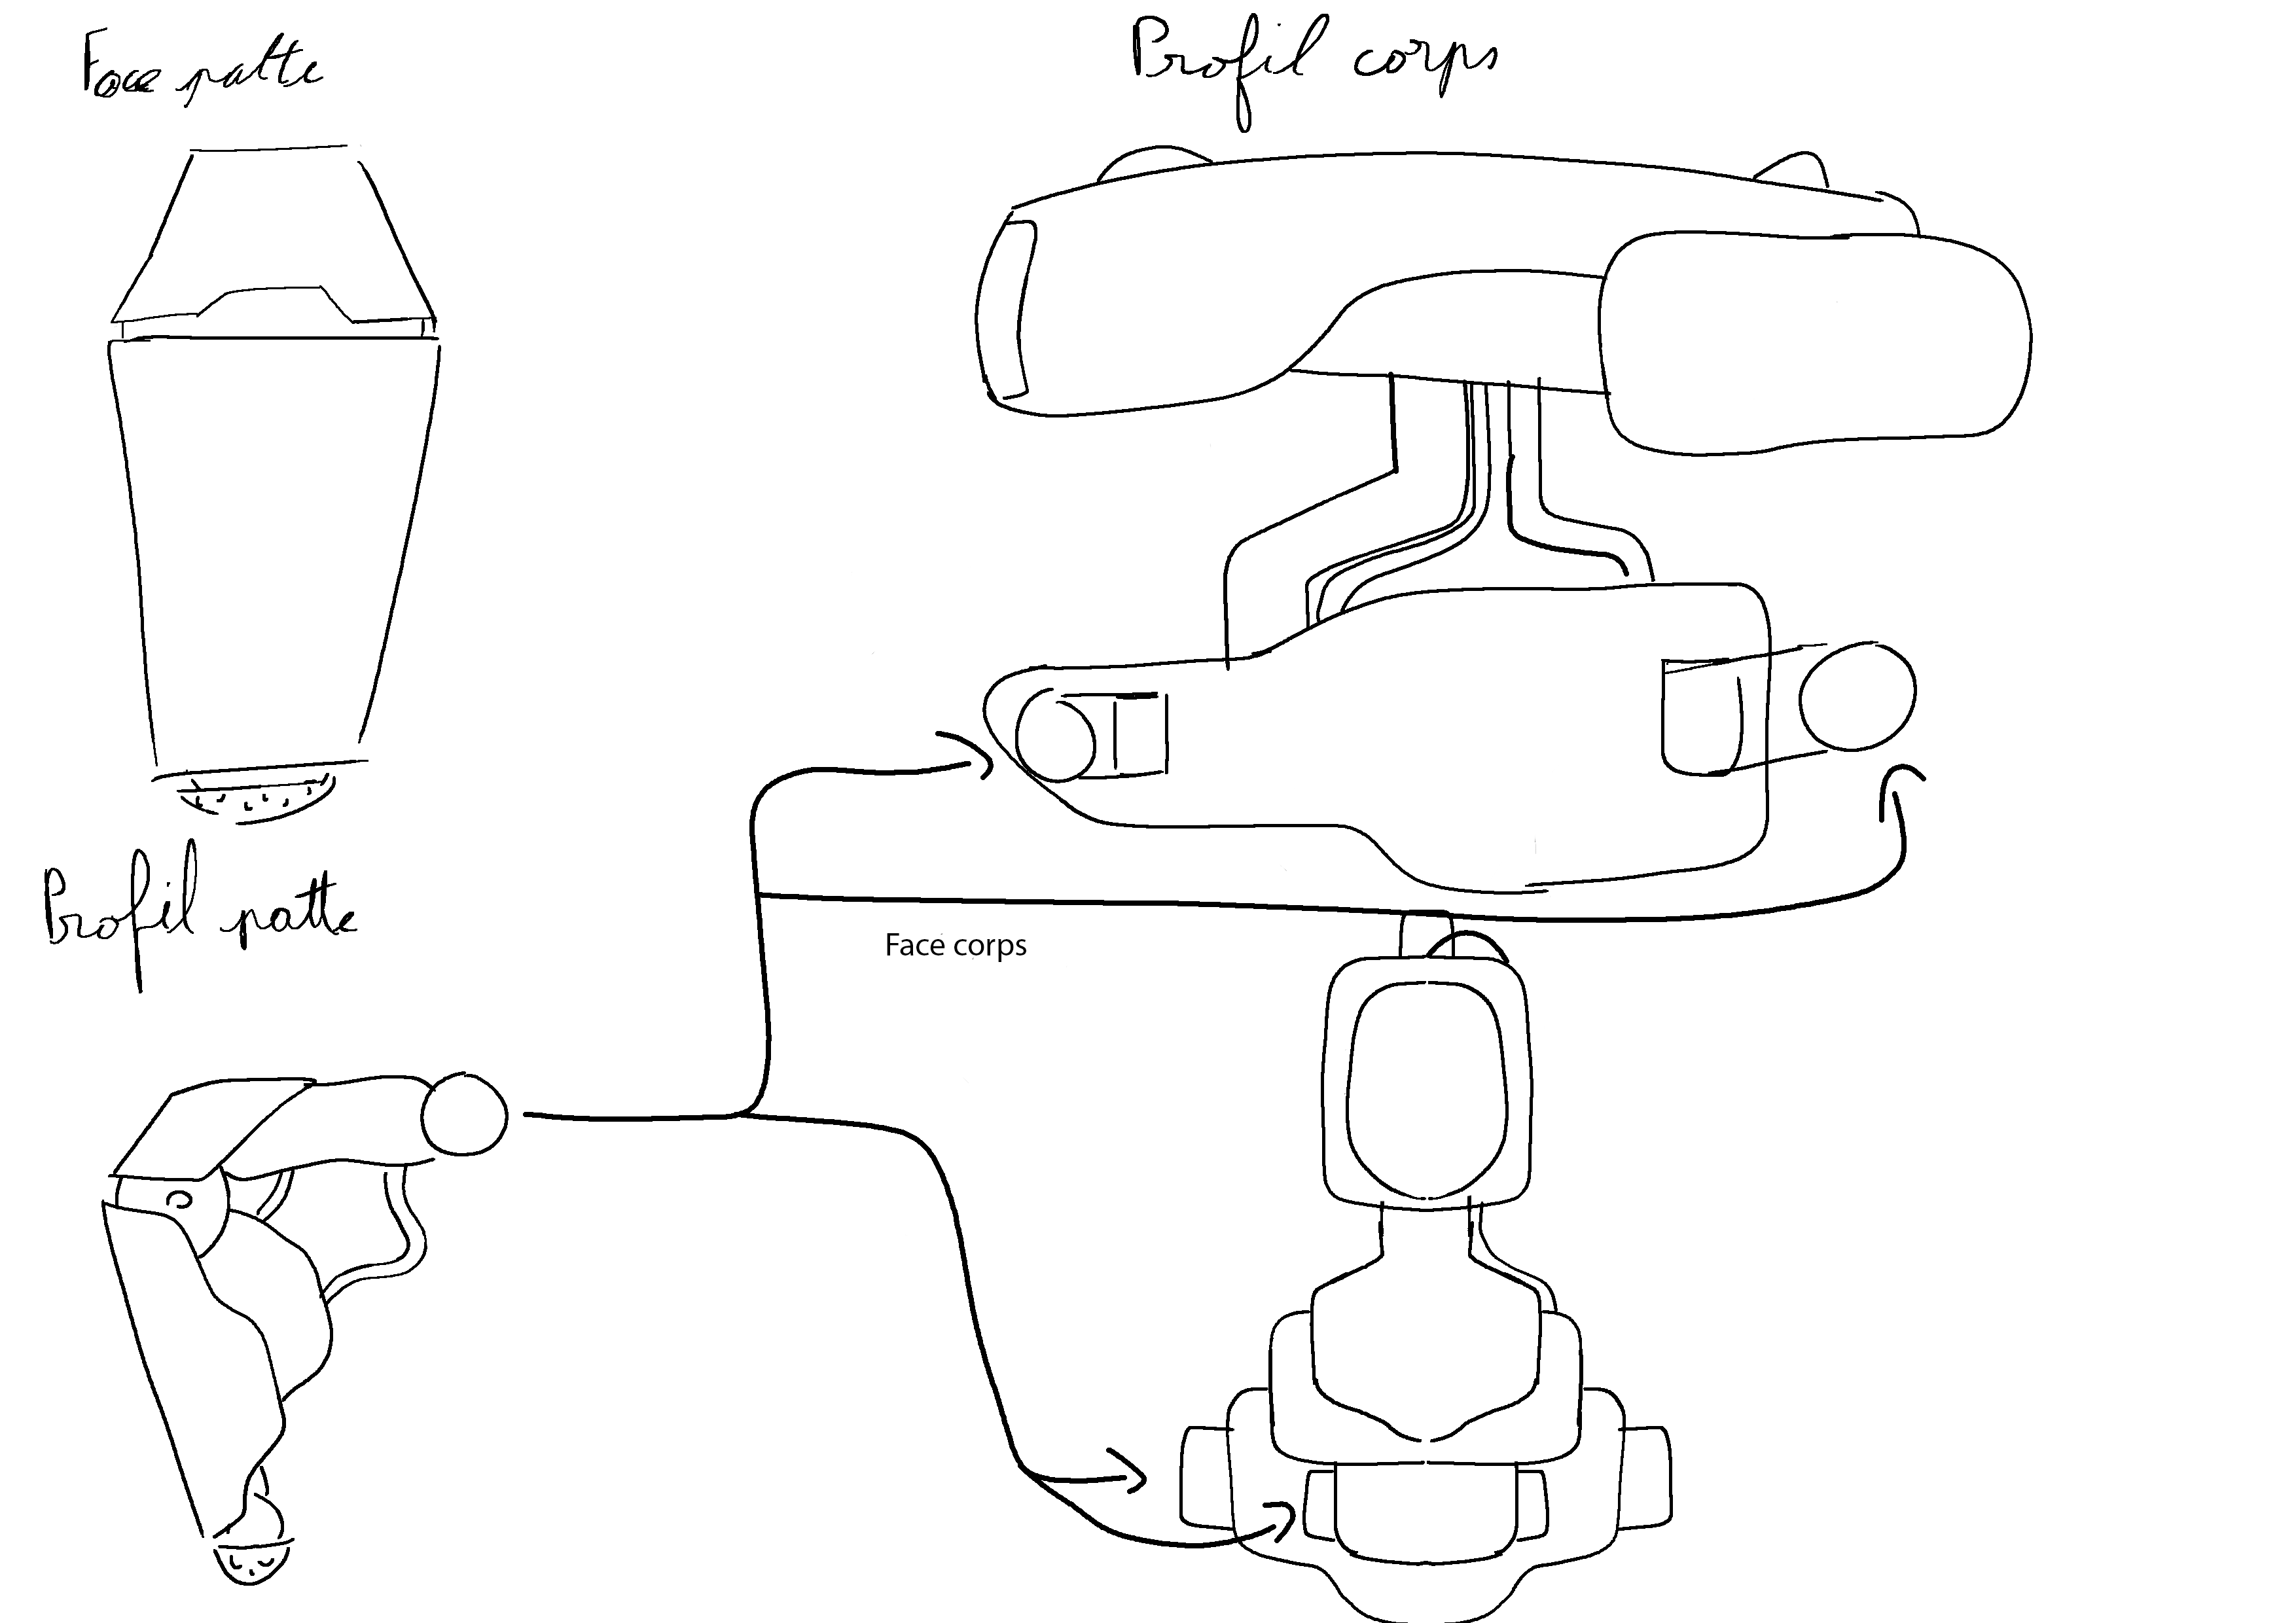 Face patte
Profil corps
Profil patte
Face corps